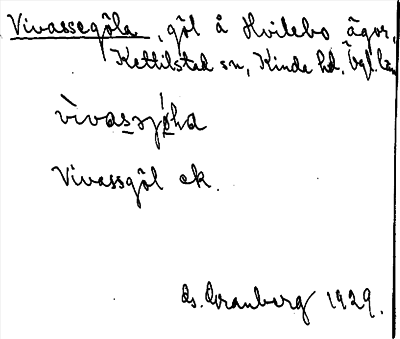 Vivassegöla, göl å Hvilebo ägor,
Kettilstad sn, Kinda hd, Ögl. län
vìvassjø̀ha
Vivassgöl ek.
G. Granberg 1929.